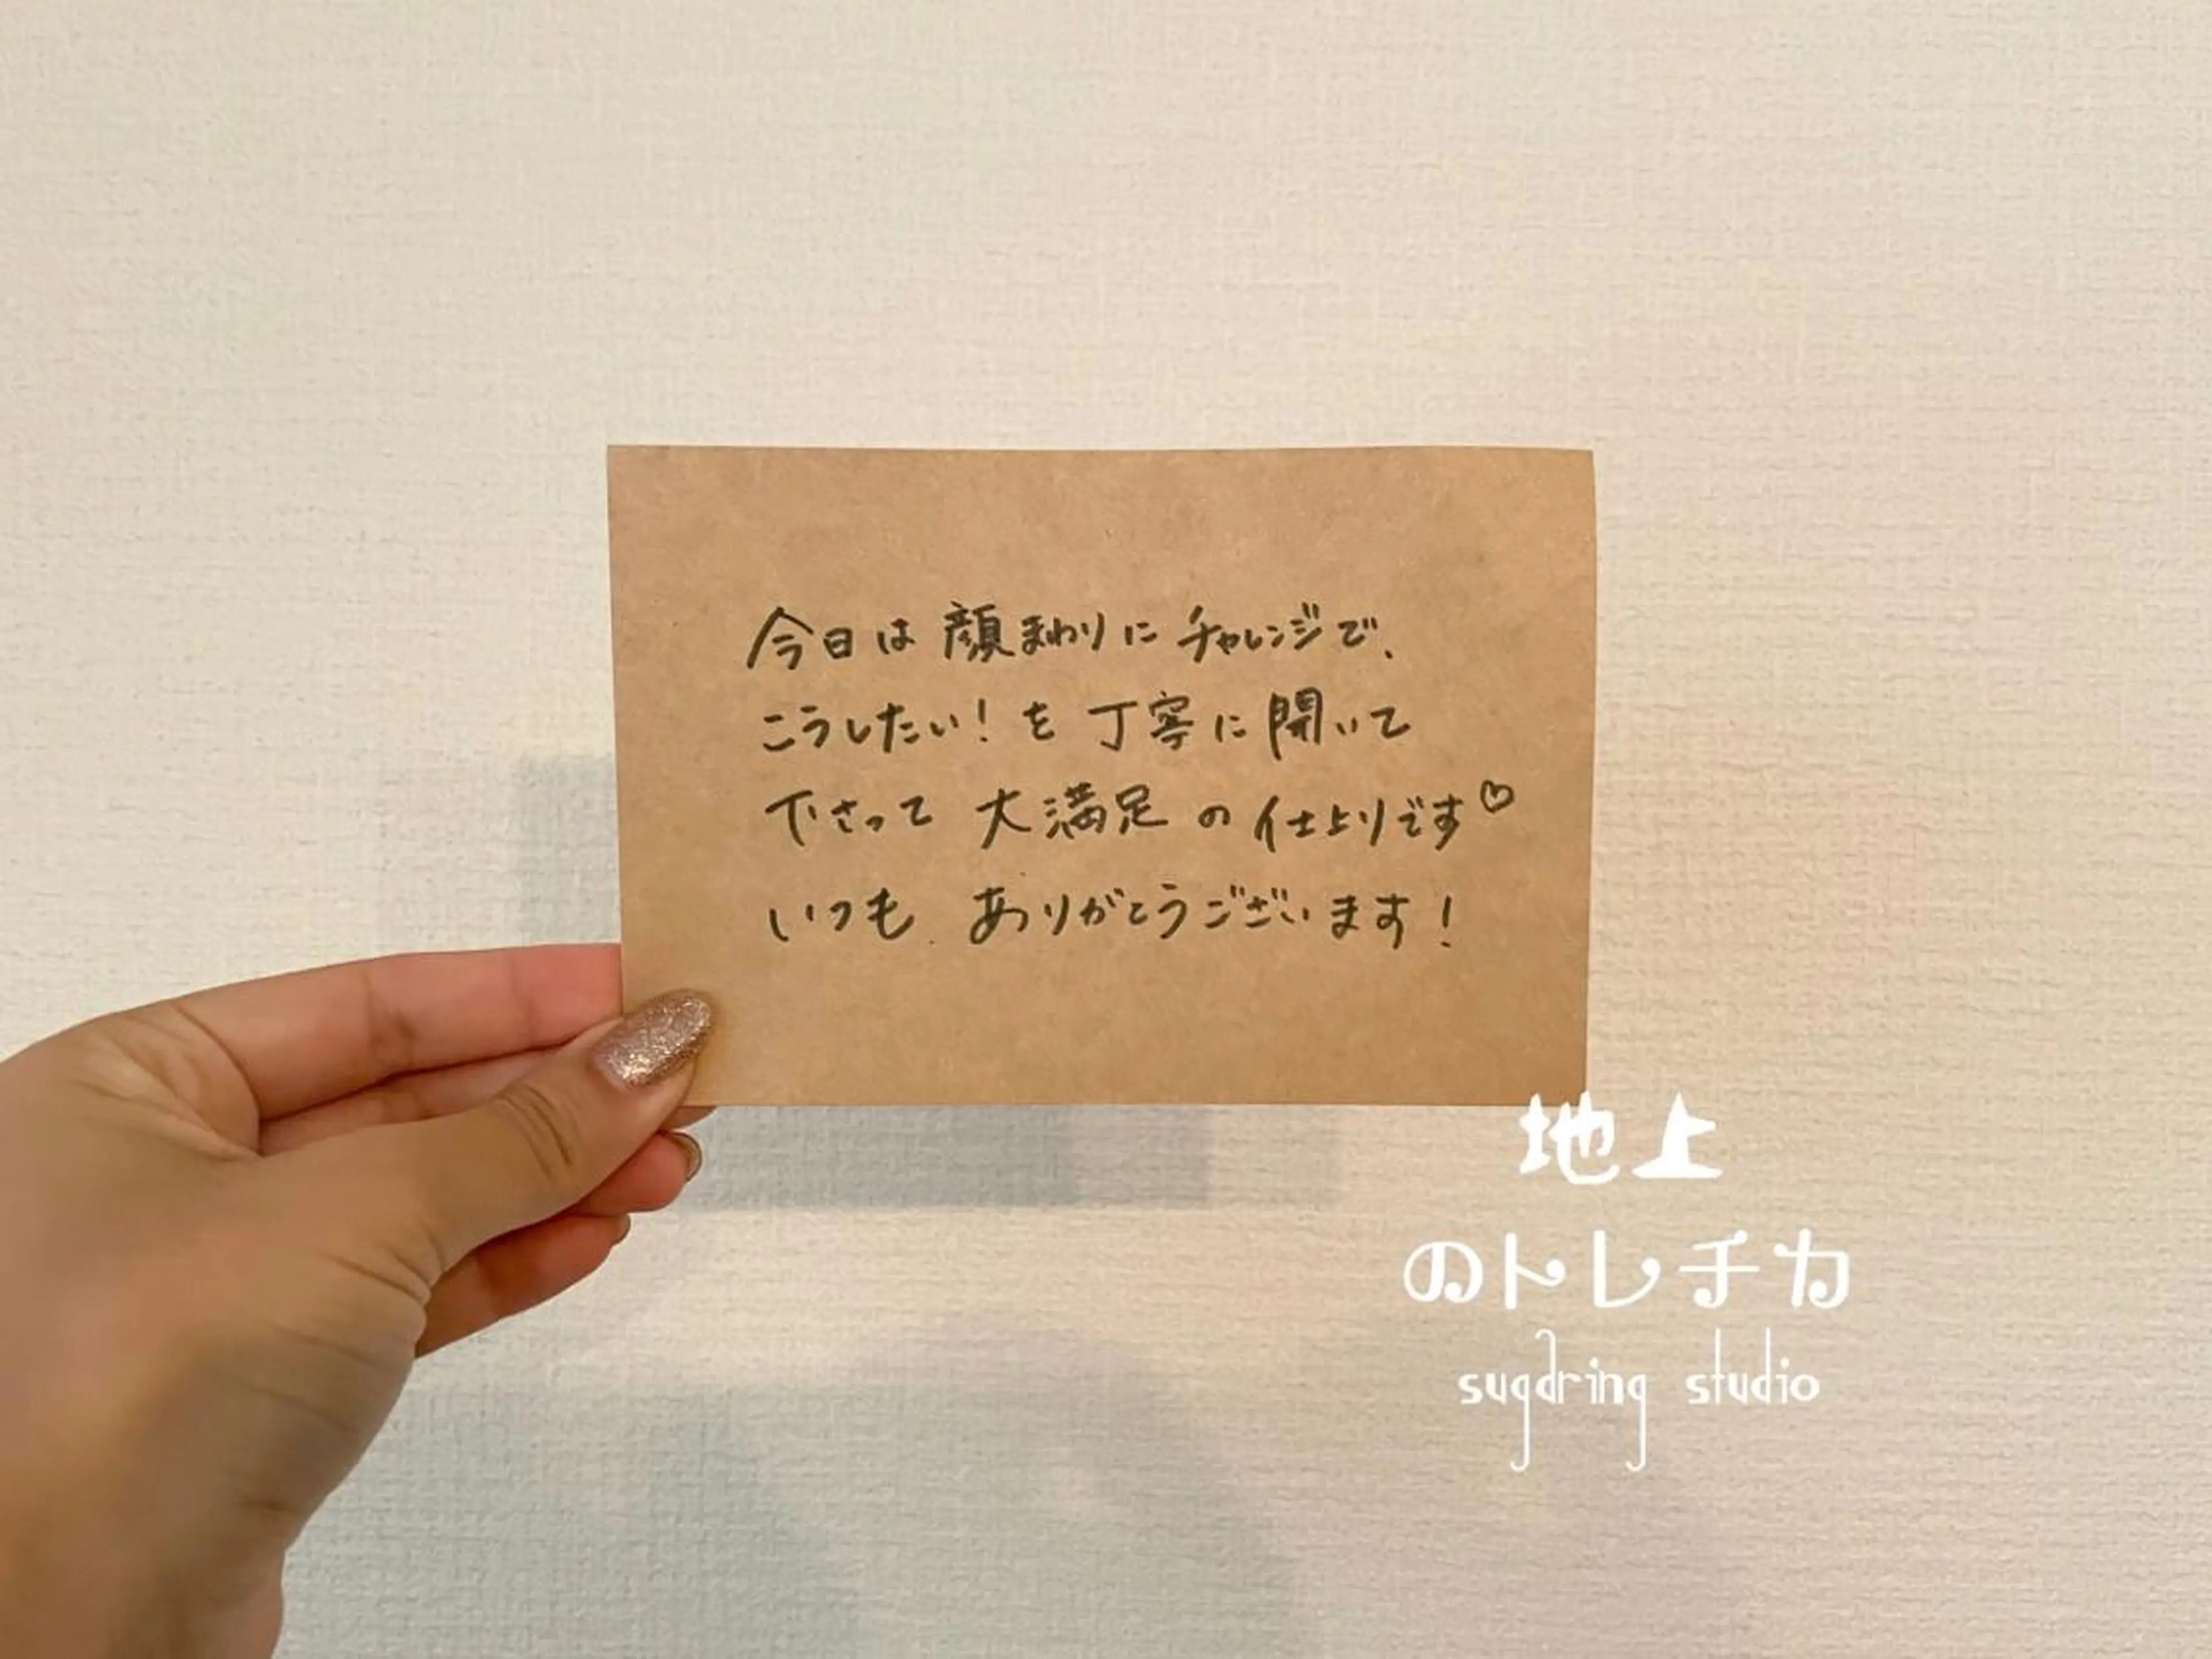 今日は顔まわりにチャレンジで、
こうしたい！を丁寧に開いて
下さって大満足の仕上りです♡
いつもありがとうございます！
地上
のトレチカ
sugaring studio